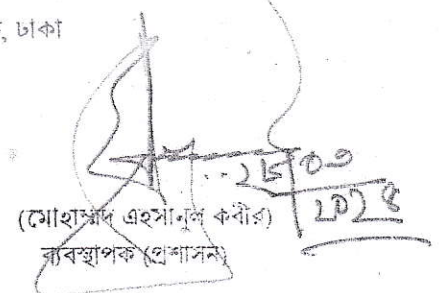 , ঢাকা
(মোহাম্মদ এহসানুল কবীর)
ব্যবস্থাপক (প্রশাসন)